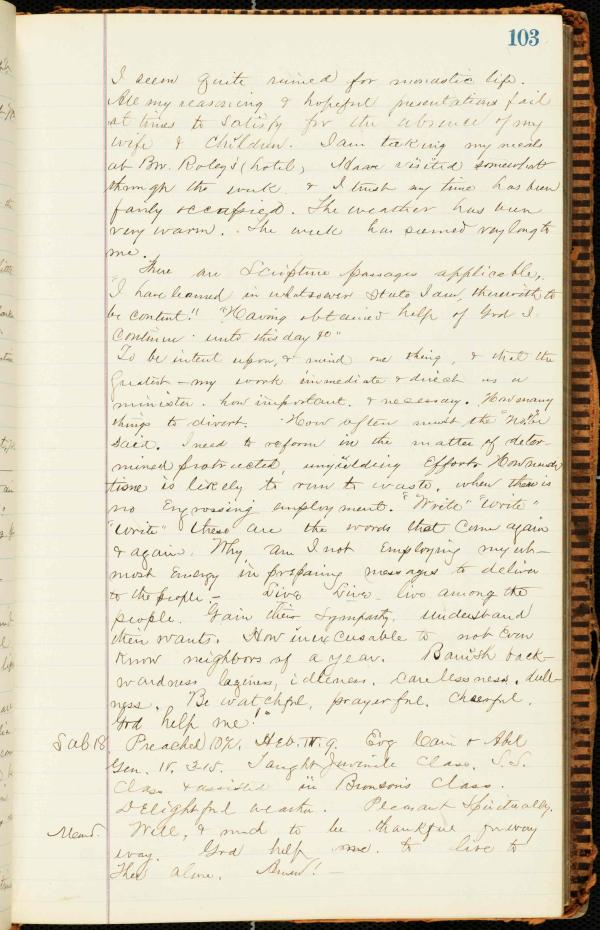 103
I seem quite ruined for monastic life.
All my reasoning & hopeful presentations fail
at times to satisfy for the absence of my
wife & children. I am taking my meals
at Bro. Roleys (hotel) Have visited somewhat
through the week & I trust my time has been
fairly occupied. The weather has been
very warm. The week has seemed very long to
me.
"There are Scripture passages applicable,
I have learned in whatsoever state I am, therewith to
be content!" "Having obtained help of God I
continue unto this day &c"
To be intent upon, & mind one thing, & that the
greatest – my work immediate & direct as a
minister. how important & necessary. How many
things to divert. How often must the be
said. I need to reform in the matter of deter-
mined protracted, unyielding efforts. How much
time is likely to run to waste, when there is
no engrossing employment. "Write" "Write"
"Write" these are the words that come again
& again. Why am I not employing my ut-
most energy in preparing messages to deliver
to the people – Live Live. live among the
people. Gain their sympathy, understand
their wants. How inexcusable to not even
know neighbors of a year. Banish back-
wardness laziness, idleness, carelessness, dull-
ness. Be watchful, prayerful, cheerful.
God help me!"
Sab 18. Preached 10½. Heb. IV. 9. Evg Cain & Abel
Gen. IV. 3-15. Taught Juvenile Class, S.S.
Class & assisted in Bronson's Class.
Delightful weather. Pleasant Spiritually.
Mond. Well, & much to be thankful for every
way. God help me to live to
Thee alone. Amen! –